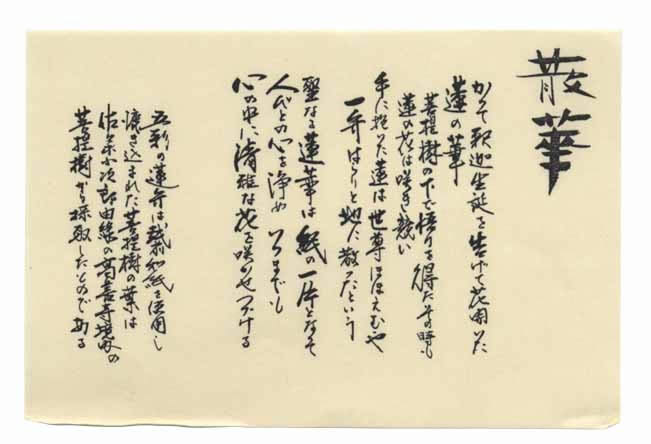 散華
かつて釈迦生誕を告げて花開いた
蓮の華
菩提樹の下で悟りを得たその時も
蓮の花は咲き競い
手に抱いた蓮は世尊ほほえむや
一弁はらりと地に散ったという
聖なる蓮華は紙の一片となって
人びとの心を浄め いつまでも
心の中に清雅な花を咲かせつづける
五彩の蓮弁は越前和紙を使用し
漉き込まれた菩提樹の葉は
佐々木小次郎由縁の高善寺境内の
菩提樹から採取したものである